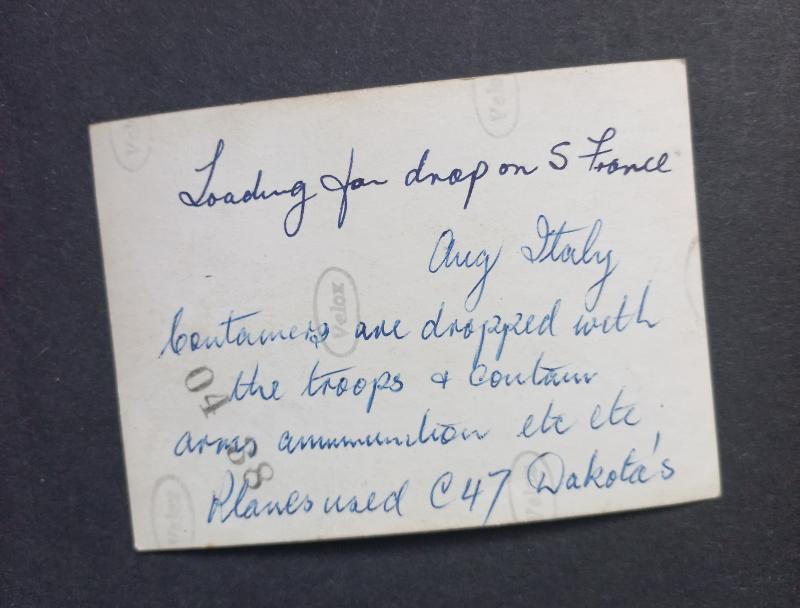 Loading for drop on S France
Aug Italy
Containers are dropped with
the troops & contain
arms ammunition etc etc.
Planes used C47 Dakota's
Velox
Velox
Velox
Velox
Velox
04 58